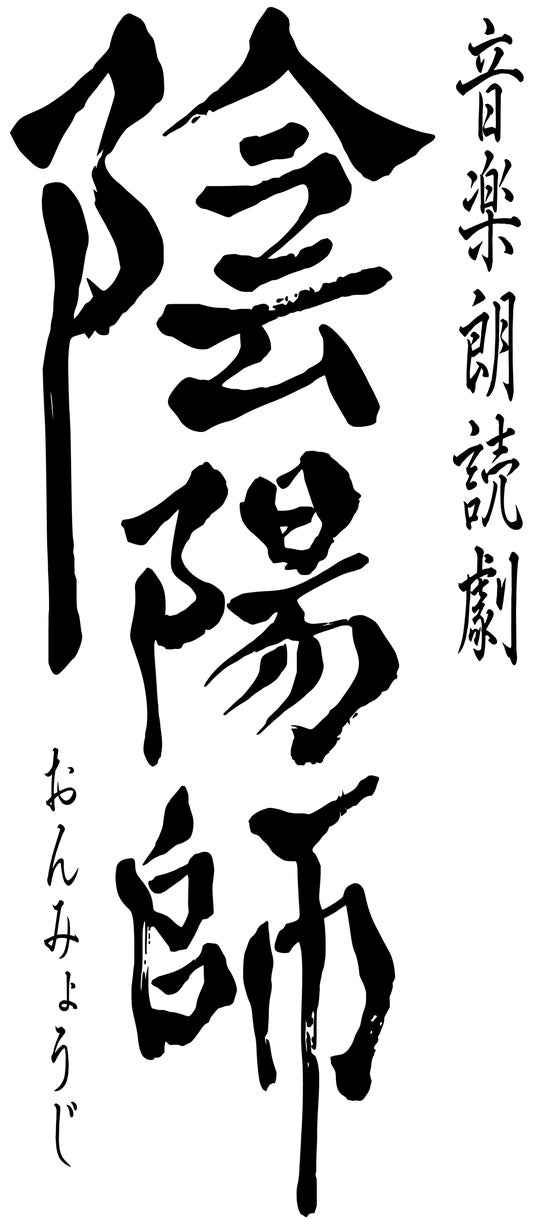 音楽朗読劇
陰陽師
おんみょうじ